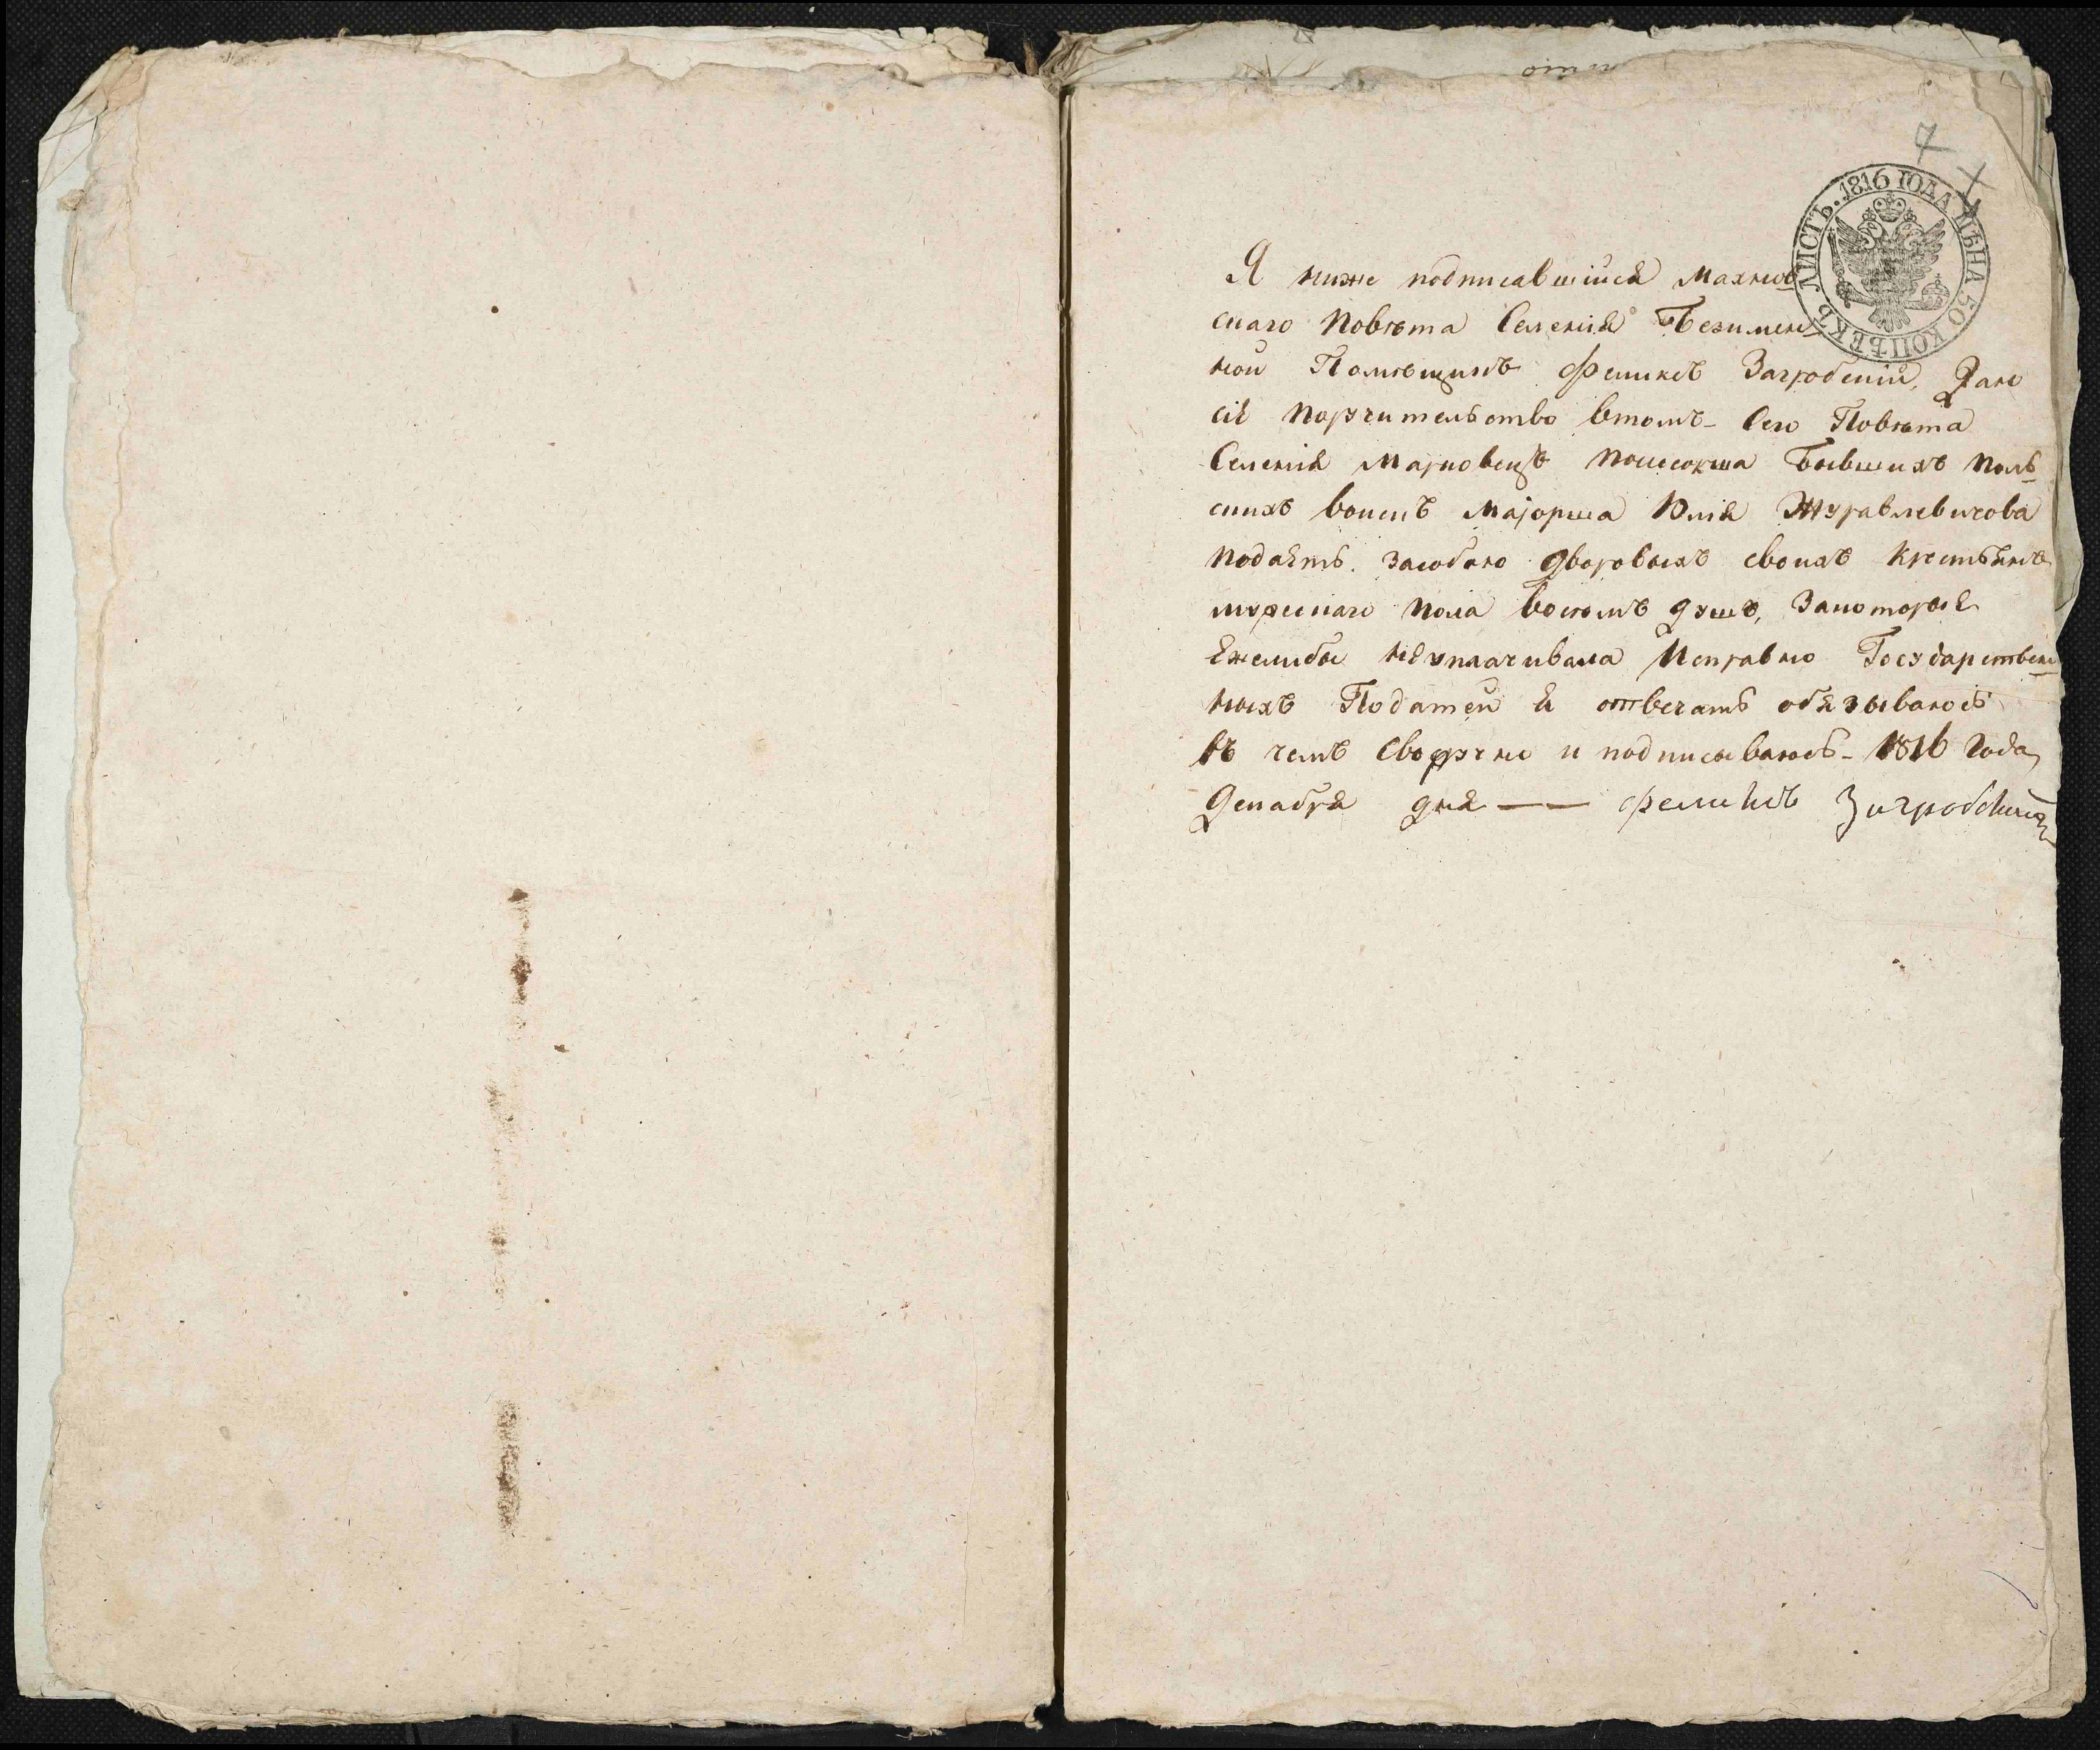 отп
7
ЛИСТЪ. 1816 ГОДА ЦѢНА 50 КОПѢЕКЪ
Я ниже подписавшійся Махнов
скаго Повѣта Селенія Безимен
ной Помѣщикъ Феликсъ Загробскій, Даю
сіе Поручительство втомъ- Сего Повѣта
Селенія Марковецъ Посесорша Бывшихъ Поль
скихъ воискъ Маіорша Юлія Журавлевичова
Подаетъ засобою Дворовыхъ своихъ Крестьянъ
мужескаго Пола восемъ душъ, Закоторые
Ежелибы неуплачивала Исправно Государствен
ныхъ Податей я отвечать обязываюсь
въ чемъ своеручно и подписываюсь- 1816 Года
Декабря дня —— Феликсъ Загробский